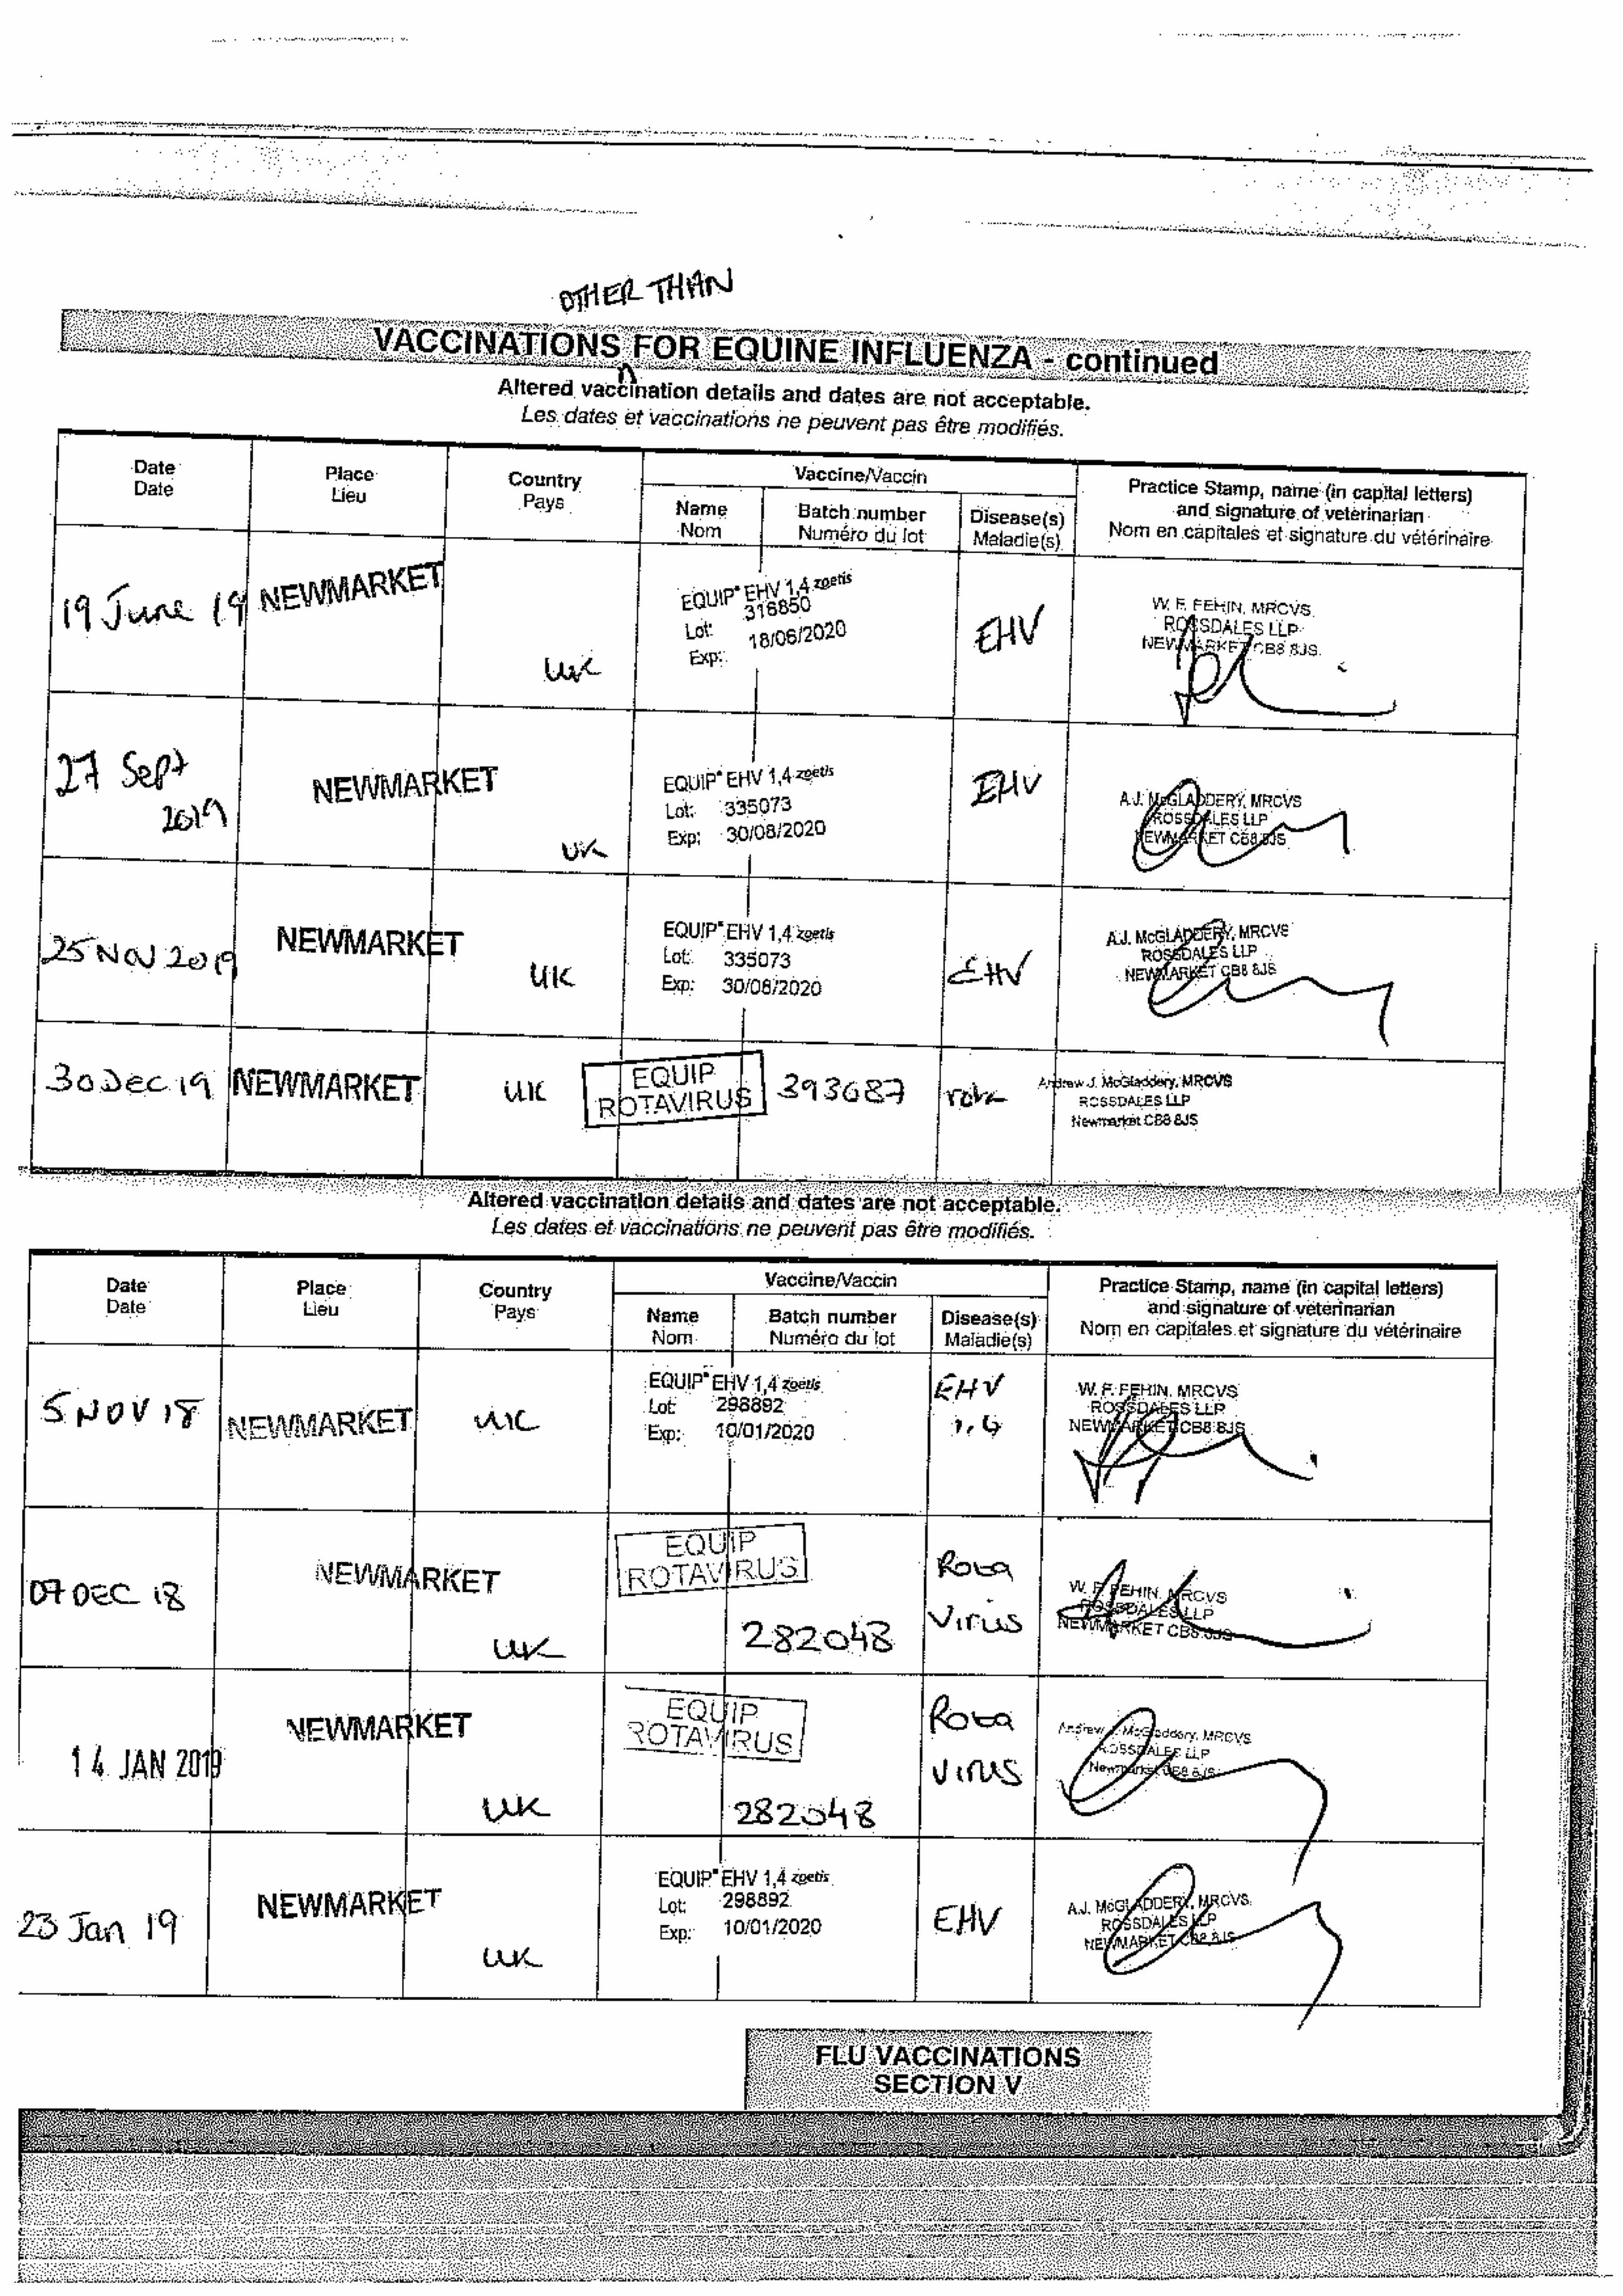 OTHER THAN
VACCINATIONS FOR EQUINE INFLUENZA - continued
Altered vaccination details and dates are not acceptable.
Les dates et vaccinations ne peuvent pas être modifiés.
Date Place Country Vaccine/Vaccin Practice Stamp, name (in capital letters)
Date Lieu Pays Name Batch number Disease(s) and signature of veterinarian
Nom Numéro du lot Maladie(s) Nom en capitales et signature du vétérinaire
19 June 19 NEWMARKET UK
EQUIP EHV 1,4 zoetis
Lot: 316850
Exp: 18/06/2020
EHV
W. F. FEHIN, MRCVS
ROSSDALES LLP
NEWMARKET CB8 8JS.
27 Sept
2019
NEWMARKET
UK
EQUIP EHV 1,4 zoetis
Lot: 335073
Exp: 30/08/2020
EHV
A.J. McGLADDERY, MRCVS
ROSSDALES LLP
NEWMARKET CB8 8JS
25 NOV 2019 NEWMARKET UK
EQUIP EHV 1,4 zoetis
Lot: 335073
Exp: 30/08/2020
EHV
A.J. McGLADDERY, MRCVS
ROSSDALES LLP
NEWMARKET CB8 8JS
30 Dec 19 NEWMARKET UK
EQUIP
ROTAVIRUS
393687
rota
Andrew J. McGladdery, MRCVS
ROSSDALES LLP
Newmarket CB8 8JS
Altered vaccination details and dates are not acceptable.
Les dates et vaccinations ne peuvent pas être modifiés.
Date Place Country Vaccine/Vaccin Practice Stamp, name (in capital letters)
Date Lieu Pays Name Batch number Disease(s) and signature of veterinarian
Nom Numéro du lot Maladie(s) Nom en capitales et signature du vétérinaire
5 NOV 18 NEWMARKET UK
EQUIP EHV 1,4 zoetis
Lot: 298892
Exp: 10/01/2020
EHV
1,4
W. F. FEHIN, MRCVS
ROSSDALES LLP
NEWMARKET CB8 8JS
07 DEC 18 NEWMARKET
UK
EQUIP
ROTAVIRUS
282048
Rota
Virus
W. F. FEHIN, MRCVS
ROSSDALES LLP
NEWMARKET CB8 8JS
14 JAN 2019
NEWMARKET
UK
EQUIP
ROTAVIRUS
282048
Rota
Virus
Andrew J. McGladdery, MRCVS
ROSSDALES LLP
Newmarket CB8 8JS
23 Jan 19 NEWMARKET
UK
EQUIP EHV 1,4 zoetis
Lot: 298892
Exp: 10/01/2020
EHV
A.J. McGLADDERY, MRCVS
ROSSDALES LLP
NEWMARKET CB8 8JS
FLU VACCINATIONS
SECTION V